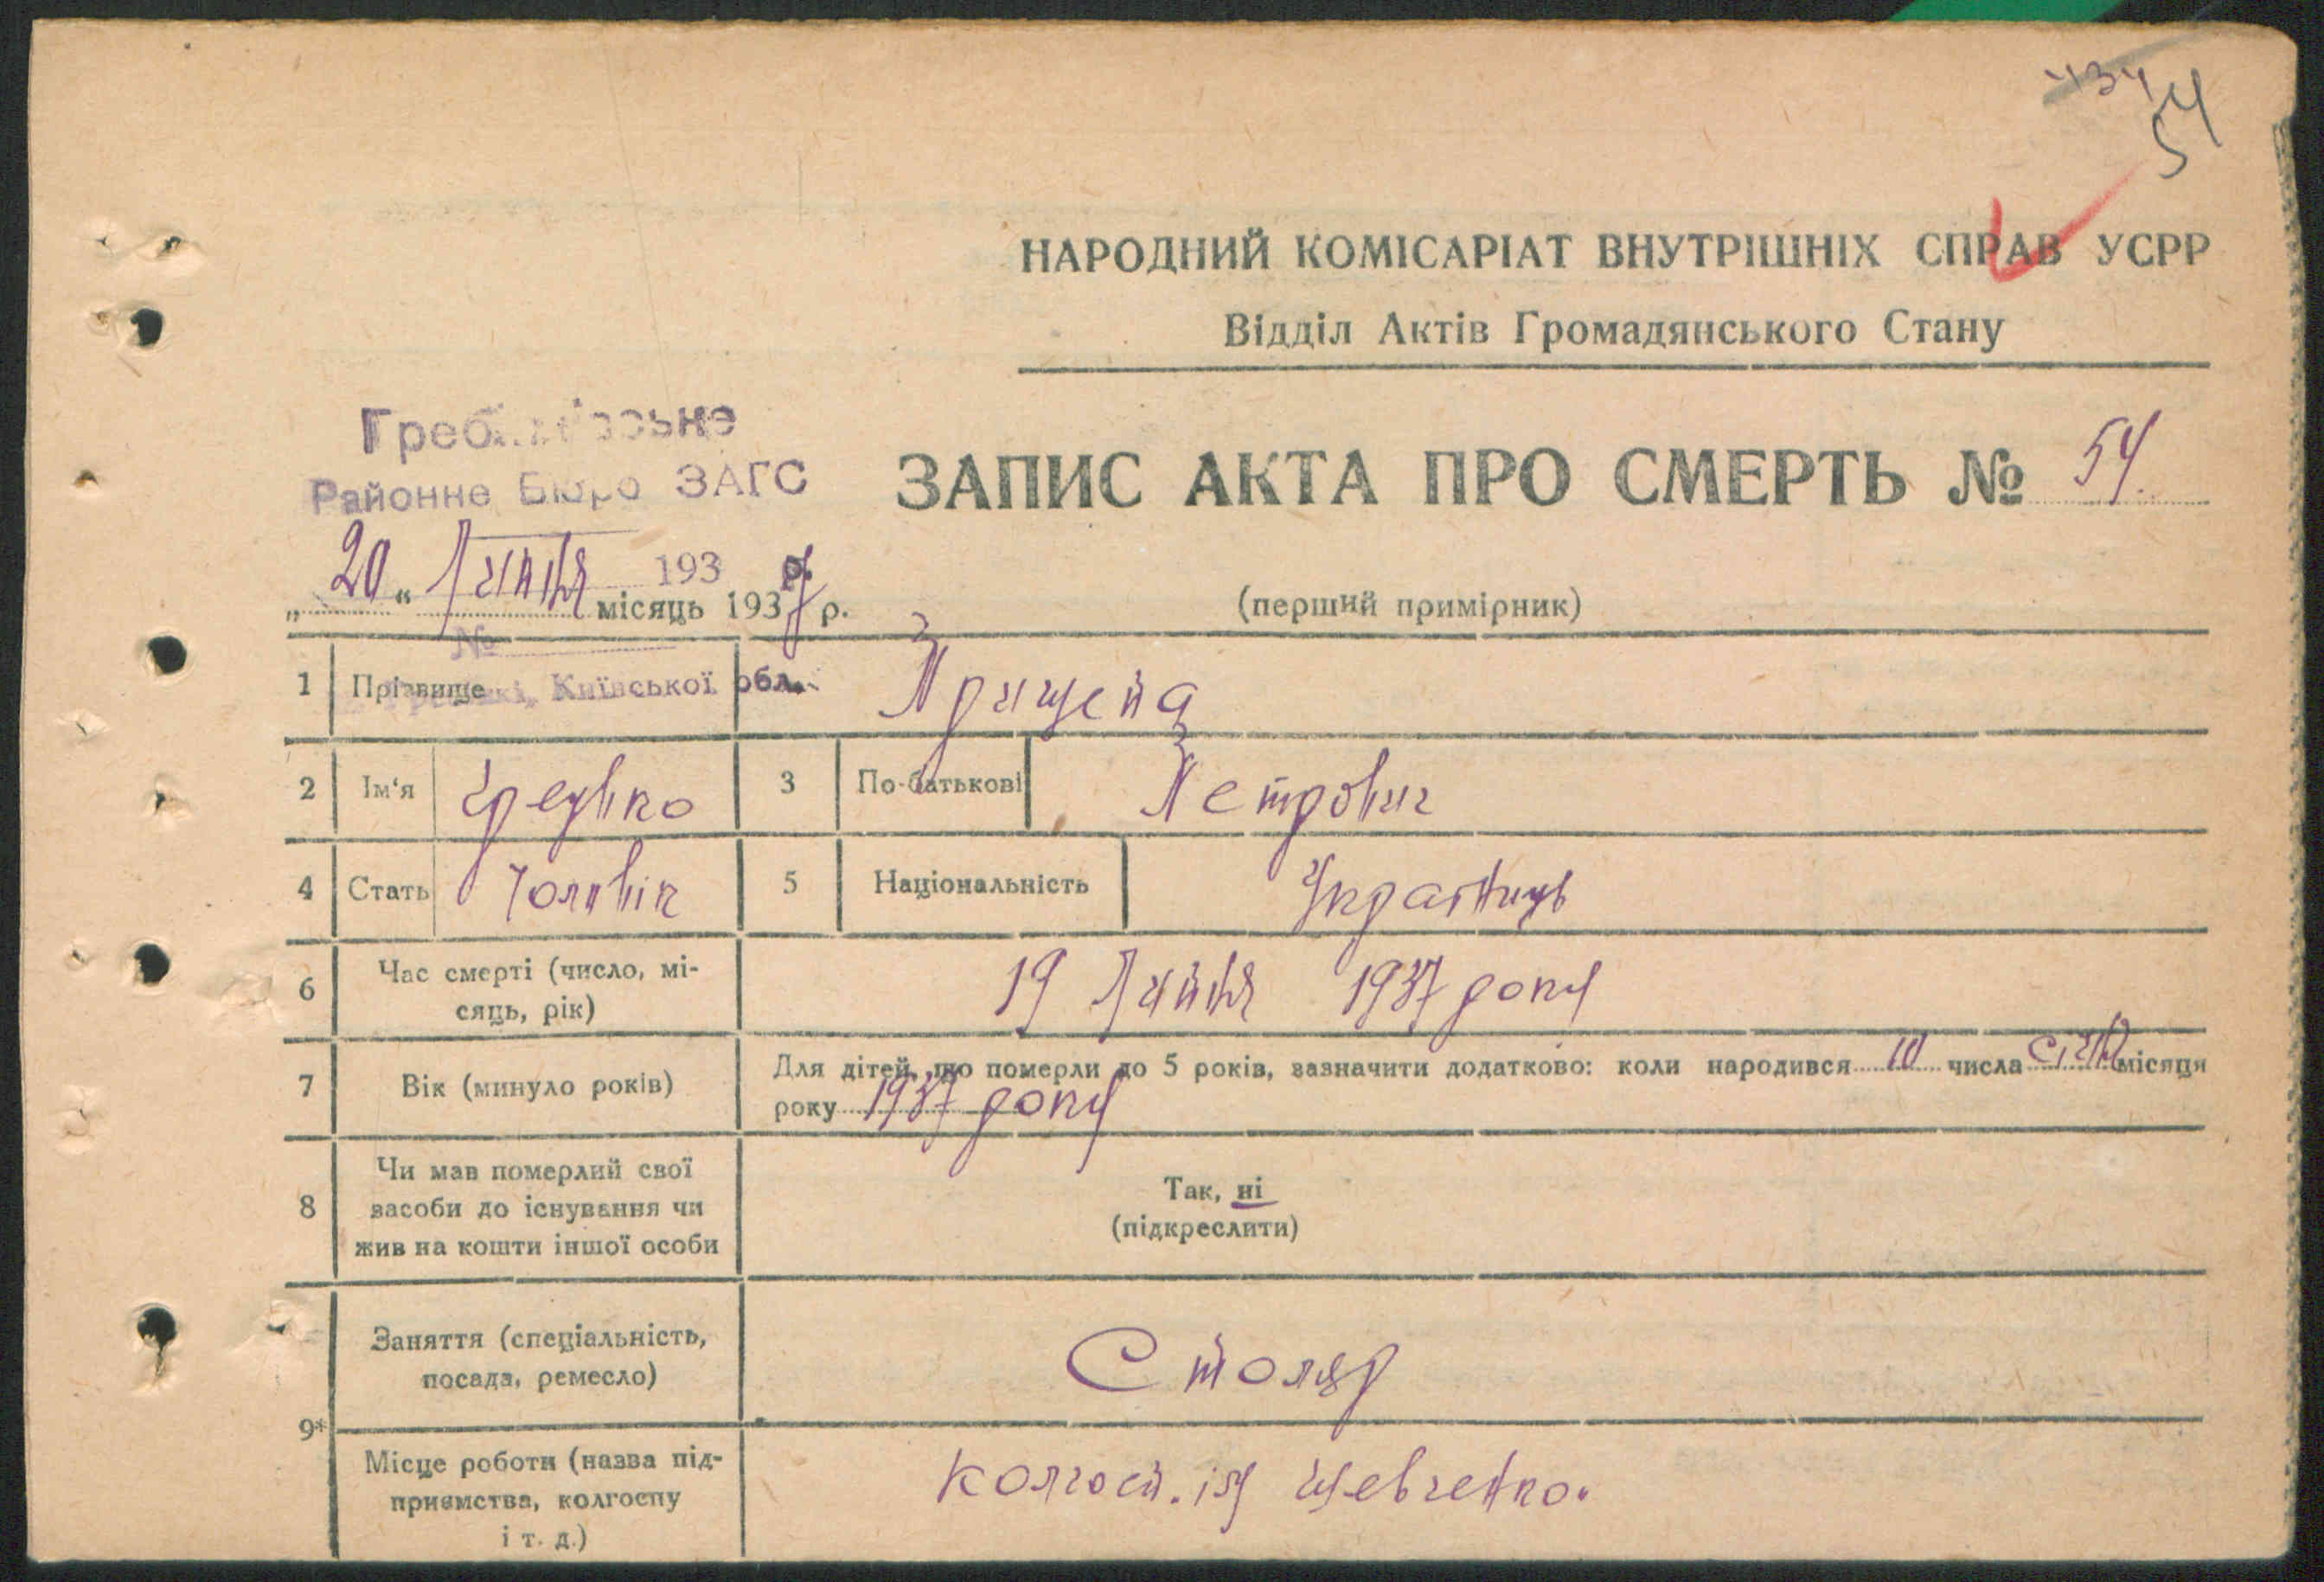 434
54
НАРОДНИЙ КОМІСАРІАТ ВНУТРІШНІХ СПРАВ УСРР
Відділ Актів Громадянського Стану
Районне Бюро ЗАГС
ЗАПИС АКТА ПРО СМЕРТЬ № 54.
193 р.
„20“ Липня місяць 1937 р.
(перший примірник)
№
Київської обл.
1 Прізвище Прищепа
2 Ім'я Федько 3 По-батькові Петрович
4 Стать Чоловік 5 Національність Українець
6 Час смерті (число, мі-
сяць, рік) 19 Липня 1937 року
7 Вік (минуло років) Для дітей, що померли до 5 років, зазначити додатково: коли народився 10 числа Січня місяця
року 1937 року
8 Чи мав померлий свої
засоби до існування чи
жив на кошти іншої особи
Так, ні
(підкреслити)
9*
Заняття (спеціальність,
посада, ремесло) Столяр
Місце роботи (назва під-
приємства, колгоспу
і т. д.) Колгосп. ім Шевченко.